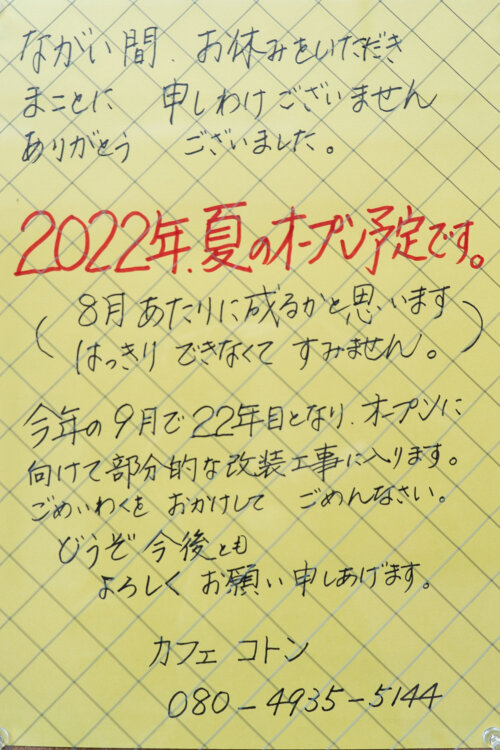 ながい間、お休みをいただき
まことに 申しわけございません
ありがとう ございました。
2022年、夏のオープン予定です。
(8月あたりに成るかと思います
はっきり できなくて すみません。)
今年の9月で22年目となり、オープンに
向けて部分的な改装工事に入ります。
ごめいわくを おかけして ごめんなさい。
どうぞ 今後とも
よろしく お願い申しあげます。
カフェ コトン
080-4935-5144